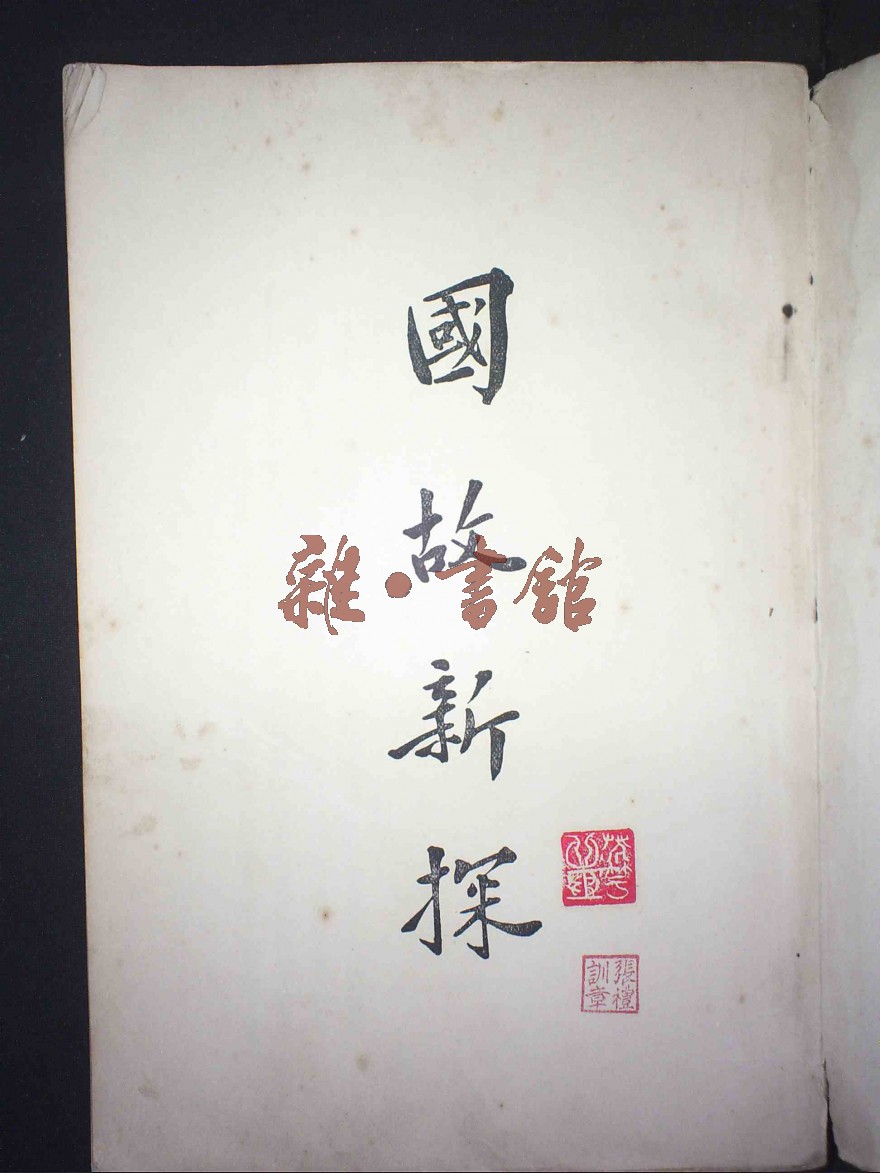 國故新探
雜·書館
張禮
訓章